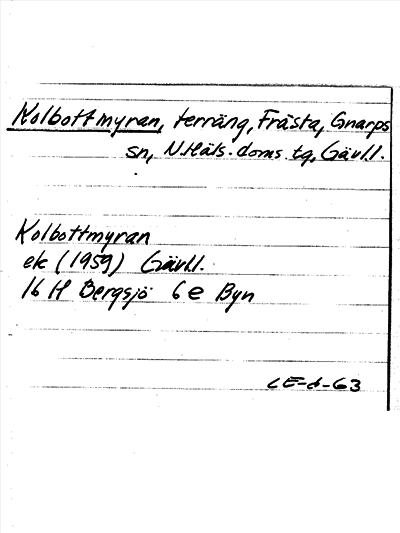 Kolbottmyran, terräng, Frästa, Gnarps
sn, N.Häls. doms. tg, Gävl.l.
Kolbottmyran
ek (1959) Gävl.l.
16 H Bergsjö 6e Byn
LE-d-63